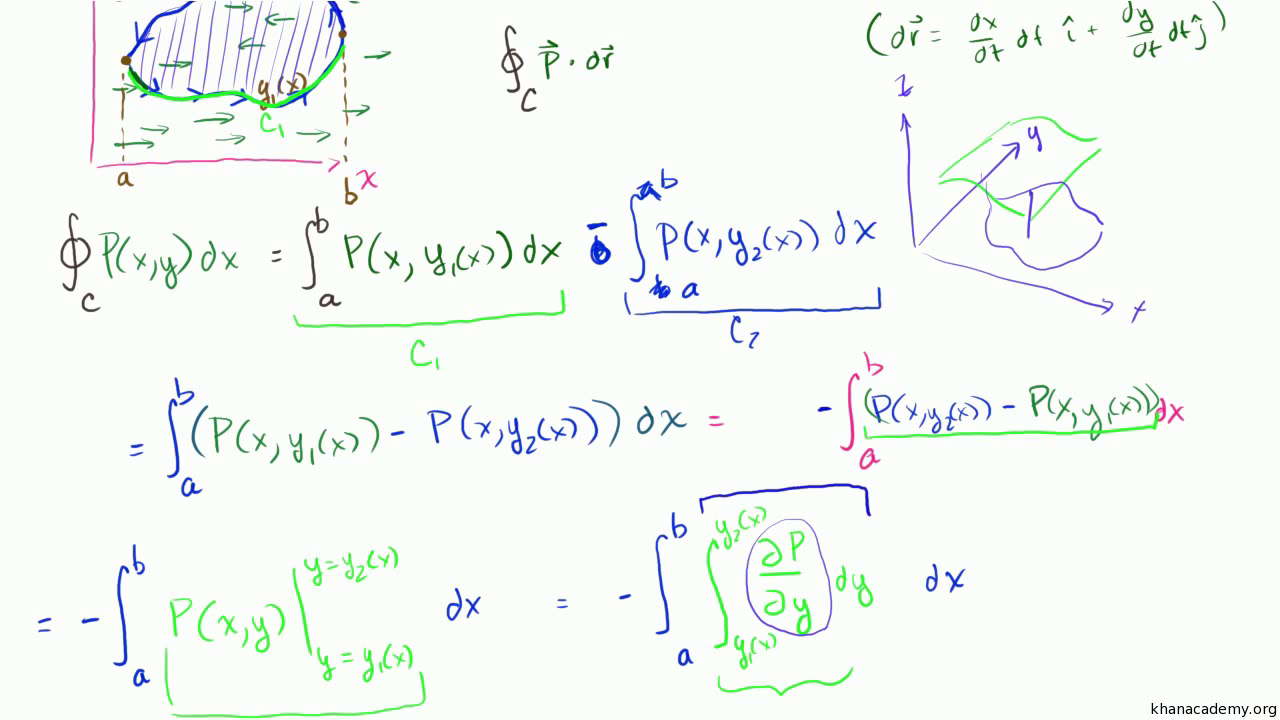 ∮_C P⃗ · dr⃗
(dr⃗ = dx/dt dt î + dy/dt dt ĵ)
y₁(x)
C₁
a
b
x
z
y
x
∮_C P(x,y) dx = ∫_a^b P(x, y₁(x)) dx - ∫_a^b P(x, y₂(x)) dx
C₁
C₂
= ∫_a^b (P(x, y₁(x)) - P(x, y₂(x))) dx = - ∫_a^b (P(x, y₂(x)) - P(x, y₁(x))) dx
= - ∫_a^b P(x,y) |_{y = y₁(x)}^{y = y₂(x)} dx = - ∫_a^b ∫_{y₁(x)}^{y₂(x)} ∂P/∂y dy dx
khanacademy.org